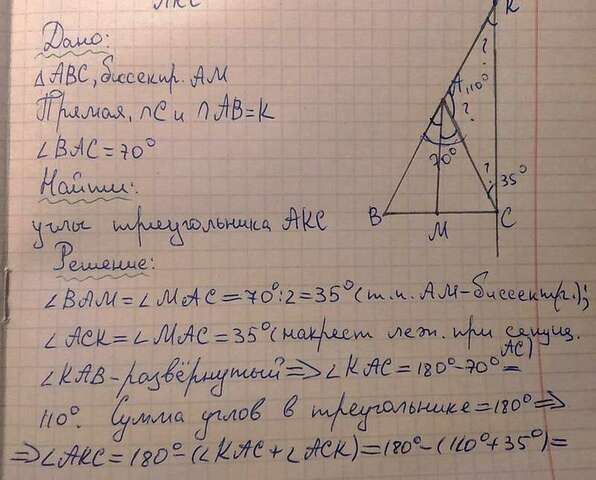 АКС
Дано:
△ABC, биссектр. AM
Прямая, ∩C и ∩AB=K
∠BAC=70°
Найти:
углы треугольника AKC
Решение:
∠BAM=∠MAC=70°:2=35° (т.к. AM-биссектр.);
∠ACK=∠MAC=35° (накрест леж. при секущ. AC)
∠KAB-развёрнутый ⇒ ∠KAC=180°-70°=
110°. Сумма углов в треугольнике=180° ⇒
⇒ ∠AKC=180°-(∠KAC+∠ACK)=180°-(110°+35°)=
K
?
A 110°
?
70°
?
35°
B
M
C